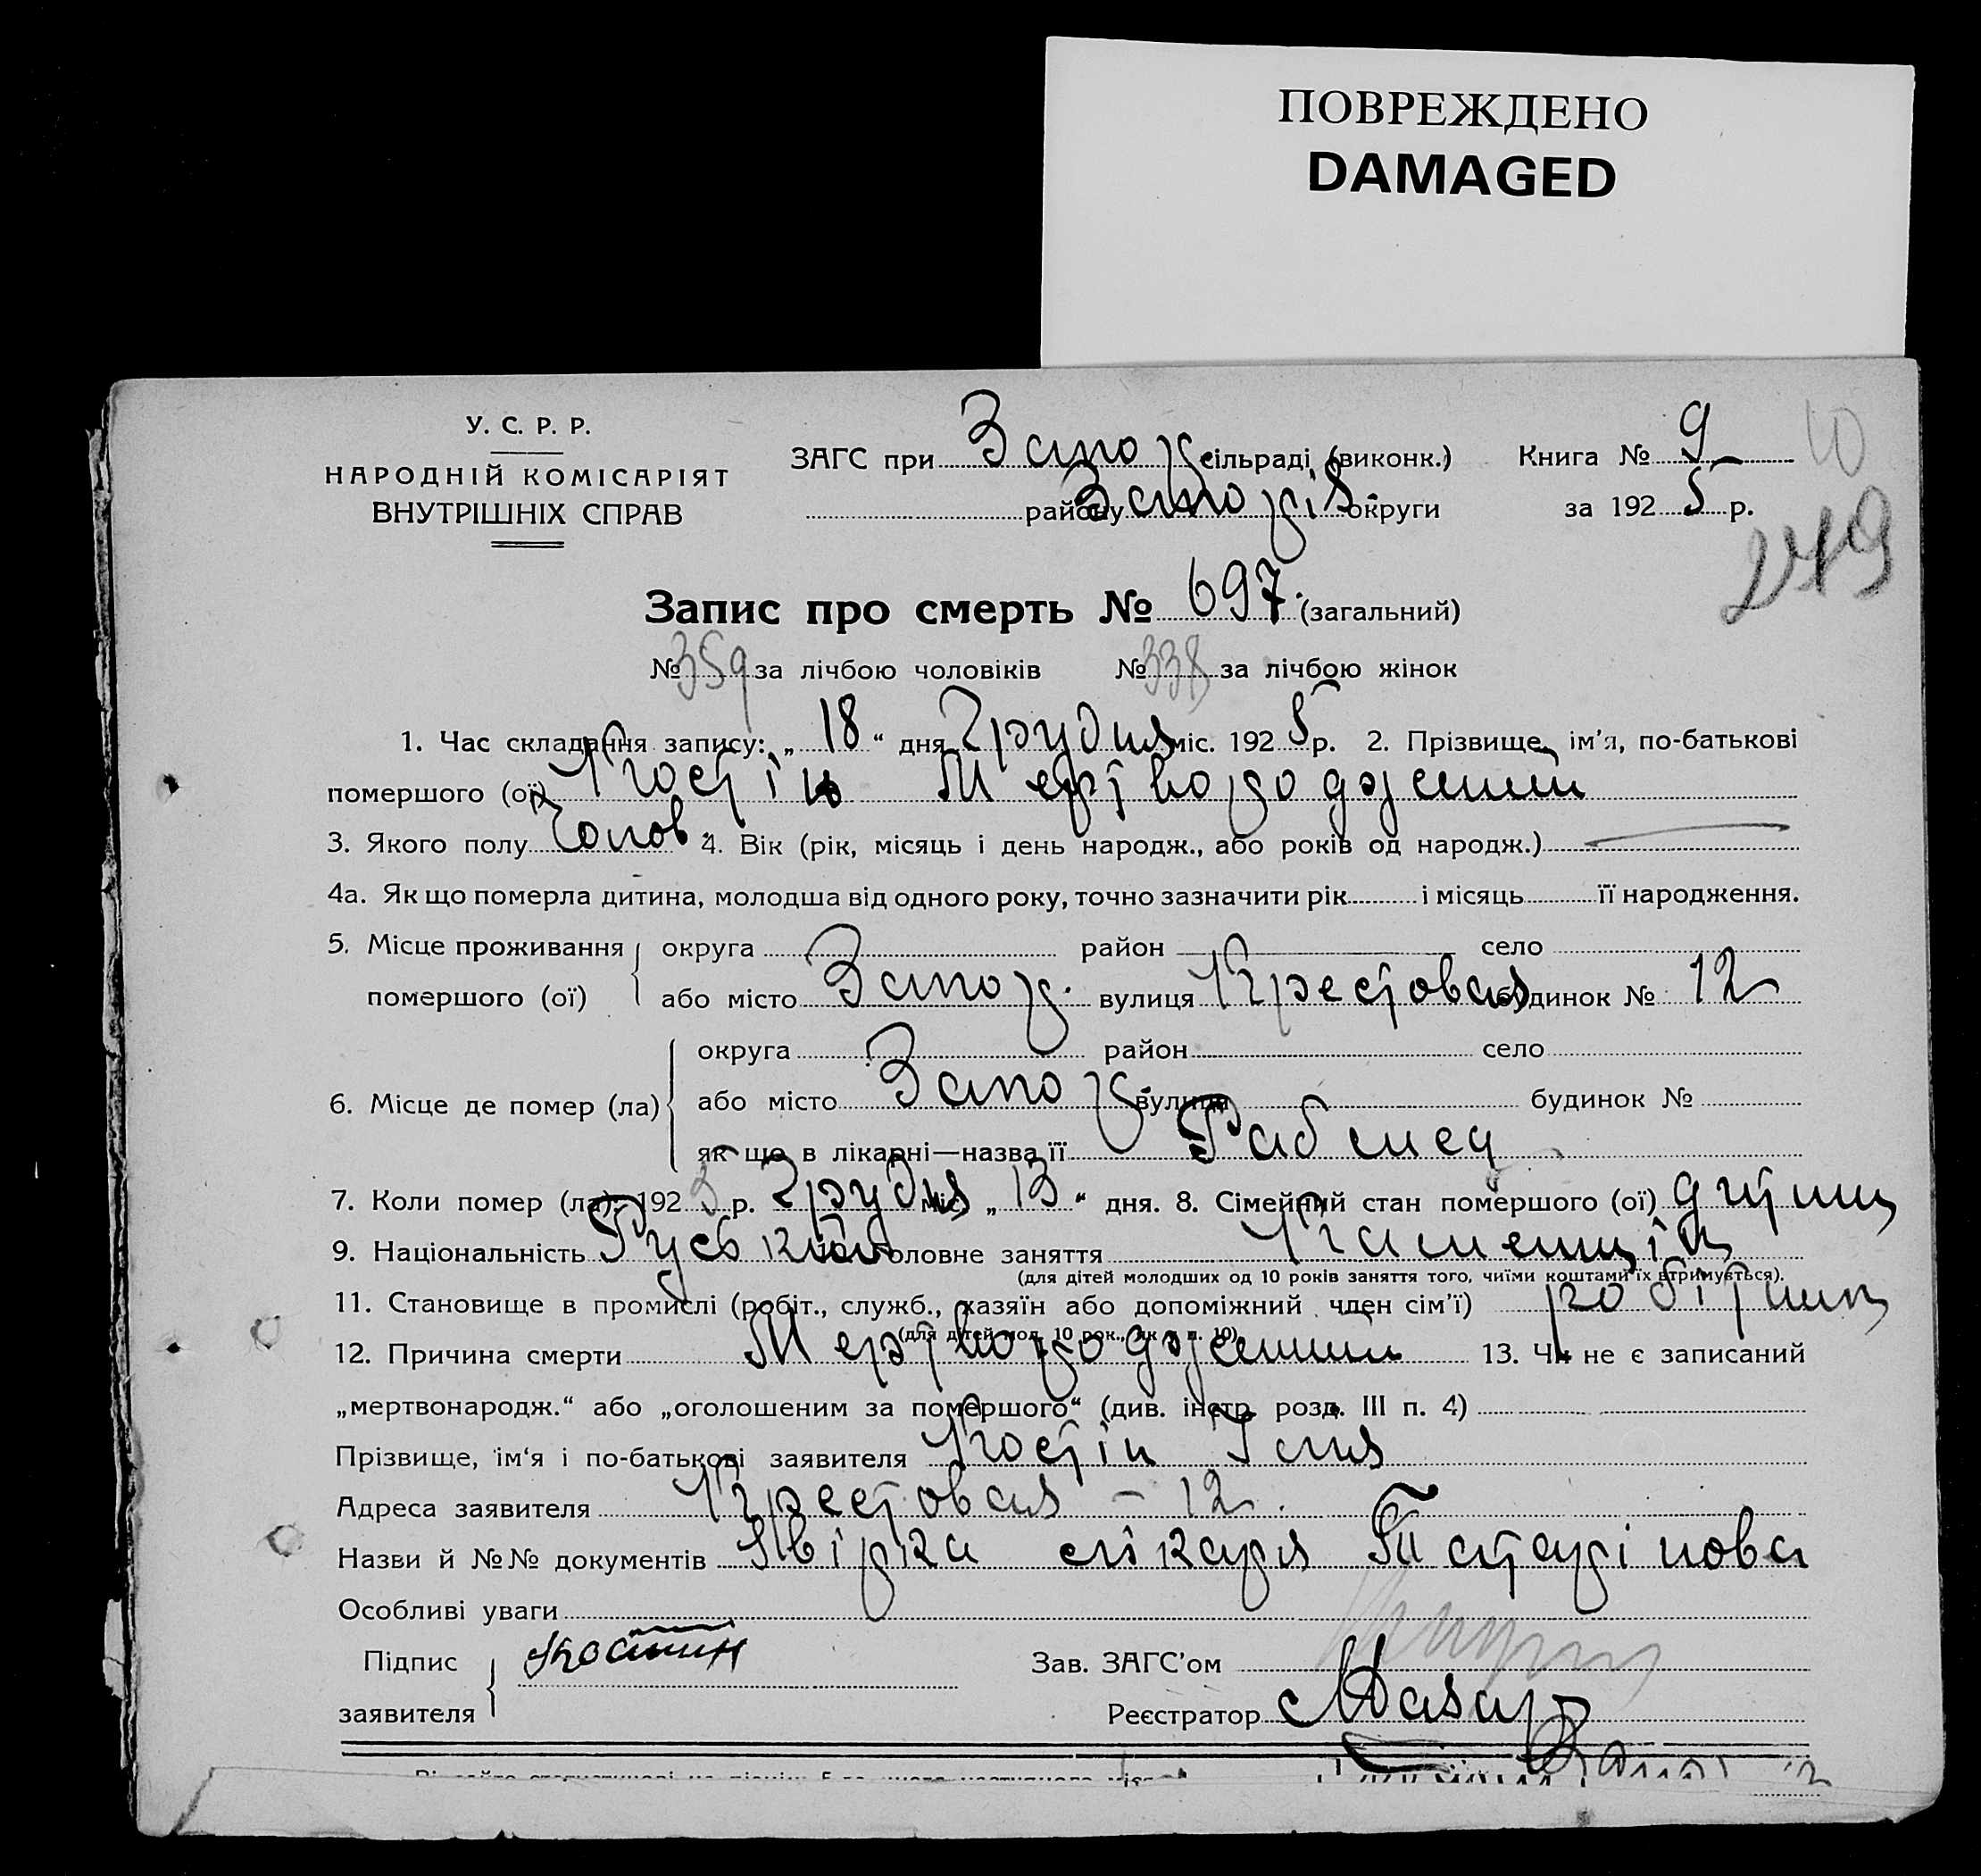 ПОВРЕЖДЕНО
DAMAGED
У. С. Р. Р.
НАРОДНІЙ КОМІСАРІЯТ
ВНУТРІШНІХ СПРАВ
ЗАГС при Запор. сільраді (виконк.) Книга № 9 10
району Запоріз. округи за 1925 р.
249
Запис про смерть № 697. (загальний)
№ 359 за лічбою чоловіків № 338 за лічбою жінок
1. Час складання запису: „18“ дня Грудня міс. 1925 р. 2. Прізвище, ім'я, по-батькові
помершого (ої) Костін Мертворожденний
3. Якого полу Чолов. 4. Вік (рік, місяць і день народж., або років од народж.)
4а. Як що померла дитина, молодша від одного року, точно зазначити рік і місяць її народження.
5. Місце проживання округа район село
помершого (ої) або місто Запор. вулиця Крестовая будинок № 12
округа район село
6. Місце де помер (ла) або місто Запор. вулиця будинок №
як що в лікарні—назва її Рабмед
7. Коли помер (ла): 1925 р. Грудня міс. „13“ дня. 8. Сімейний стан помершого (ої) дитина
9. Національність Руськой Головне заняття
(для дітей молодших од 10 років заняття того, чиїми коштами їх втримується).
11. Становище в промислі (робіт., служб., хазяїн або допоміжний член сім'ї) робітник
(для дітей мол. 10 рок., як у п. 10)
12. Причина смерти Мертворожденний 13. Чи не є записаний
„мертвонародж.“ або „оголошеним за помершого“ (див. інстр. розд. III п. 4)
Прізвище, ім'я і по-батькові заявителя Костін Ілля
Адреса заявителя Крестовая – 12.
Назви й №№ документів Явірка лікаря Татарінова
Особливі уваги
Підпис Костин Зав. ЗАГС'ом
заявителя Реєстратор